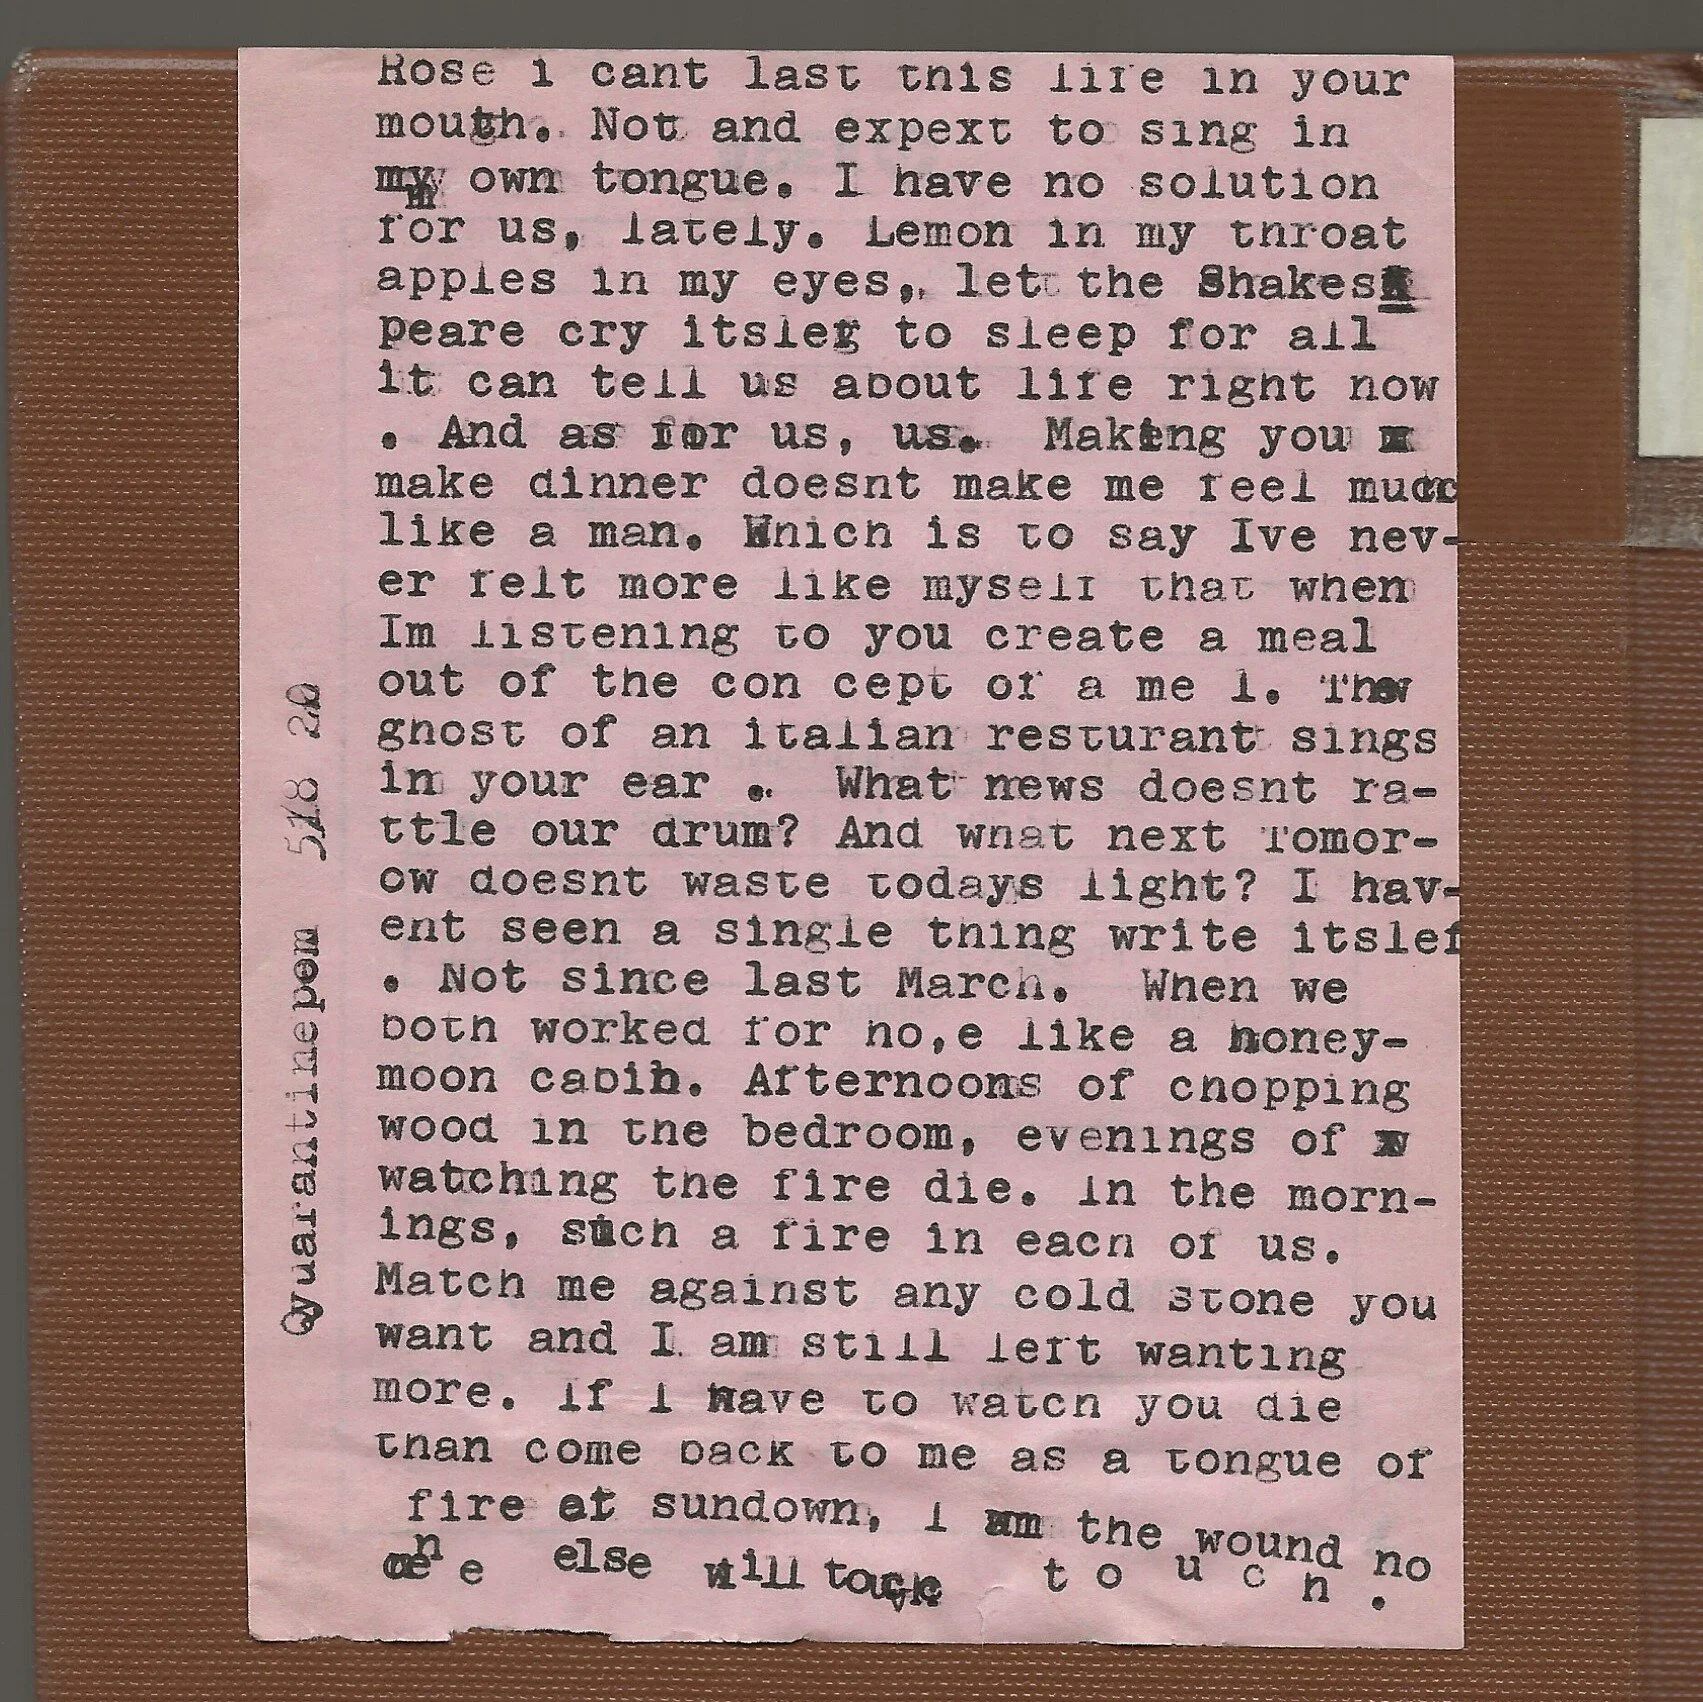 Rose i cant last this life in your
mouth. Not and expext to sing in
my own tongue. I have no solution
for us, lately. Lemon in my throat
apples in my eyes, let the Shakes
peare cry itslef to sleep for all
it can tell us about life right now
. And as for us, us. Making you
make dinner doesnt make me feel much
like a man. Which is to say Ive nev-
er felt more like myself that when
Im listening to you create a meal
out of the con cept of a me l. The
ghost of an italian resturant sings
in your ear . What news doesnt ra-
ttle our drum? And what next Tomor-
ow doesnt waste todays light? I hav-
ent seen a single thing write itslef
. Not since last March. When we
both worked for no,e like a honey-
moon cabin. Afternoons of chopping
wood in the bedroom, evenings of
watching the fire die. In the morn-
ings, such a fire in each of us.
Match me against any cold stone you
want and I am still left wanting
more. If I have to watch you die
than come back to me as a tongue of
fire at sundown, I am the wound no
one else will touch t o u c h .
Quarantinepom 5/18 20